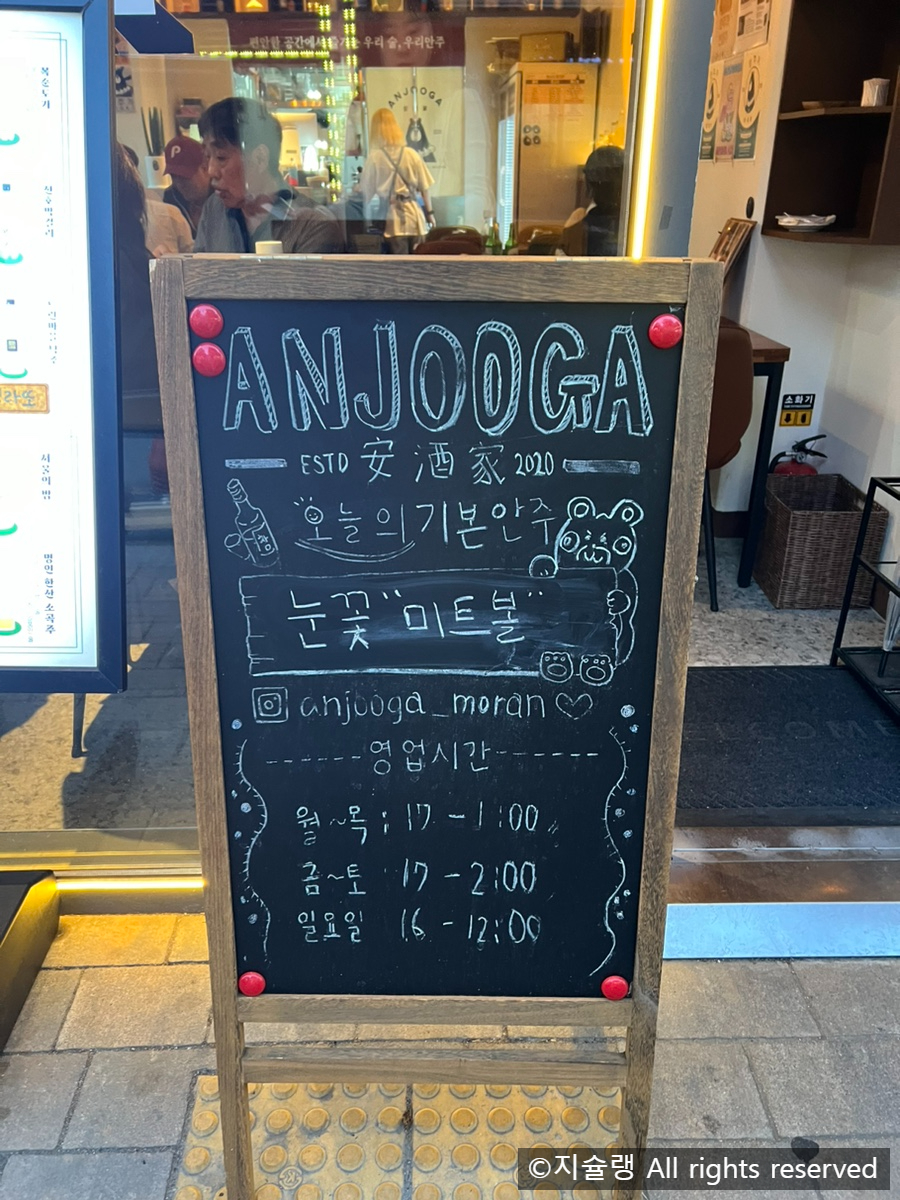 편안한 공간에서 즐기는 우리 술, 우리안주
ANJOOGA
복순도가
서울의 밤
명인 한산 소곡주
소화기
ANJOOGA
ESTD 安酒家 2020
오늘의 기본안주
눈꽃 "미트볼"
anjooga_moran
------영업시간------
월~목 : 17 - 1:00
금~토 17 - 2:00
일요일 16 - 12:00
©지슐랭 All rights reserved